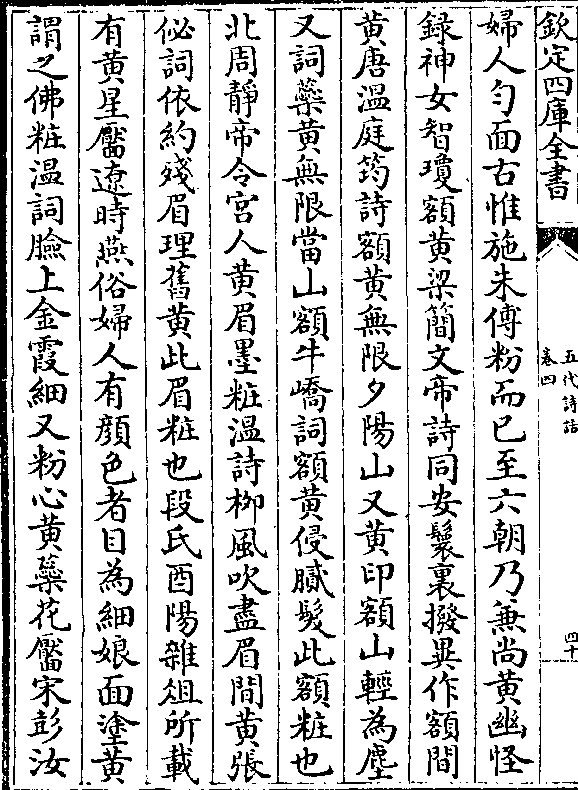 欽定四庫全書
五代詩話
卷四
四十
婦人匀面古惟施朱傅粉而已至六朝乃兼尚黄幽怪
錄神女智瓊額黄梁簡文帝詩同安鬟裏撥異作額間
黄唐温庭筠詩額黄無限夕陽山又黄印額山輕為塵
又詞蘂黄無限當山額牛嶠詞額黄侵膩髮此額粧也
北周靜帝令宫人黄眉墨粧温詩柳風吹盡眉間黄張
佖詞依約殘眉理舊黄此眉粧也段氏酉陽雜俎所載
有黄星靨遼時燕俗婦人有顔色者目為細娘面塗黄
謂之佛粧温詞臉上金霞細又粉心黄蘂花靨宋彭汝